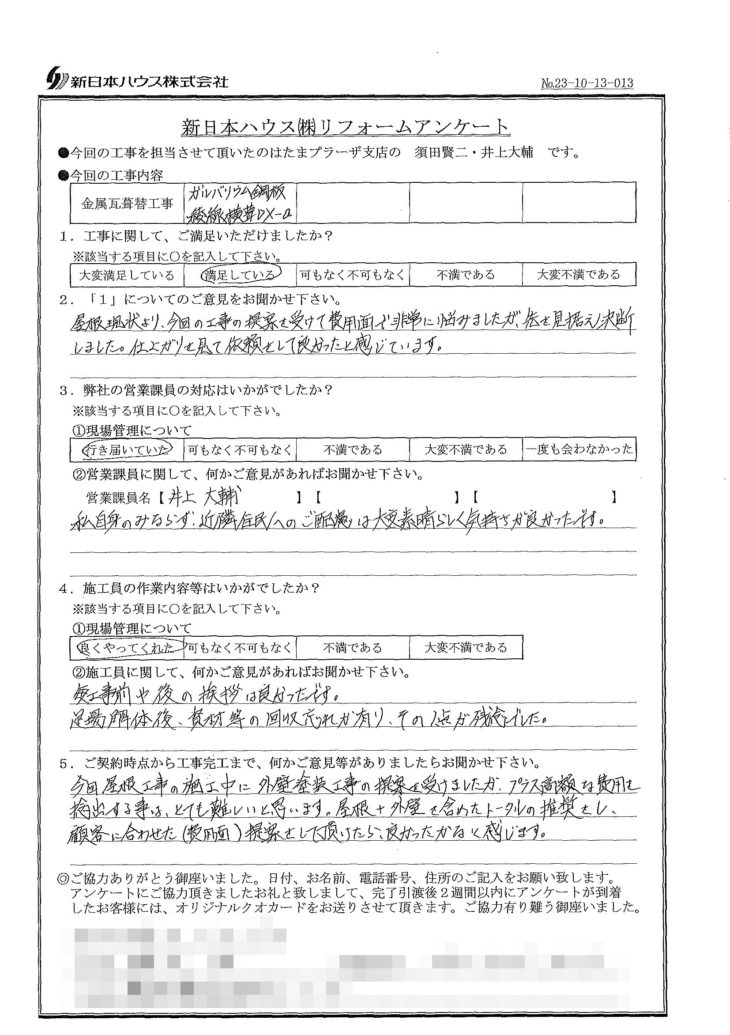 新日本ハウス株式会社
No.23-10-13-013
新日本ハウス㈱リフォームアンケート
●今回の工事を担当させて頂いたのはたまプラーザ支店の 須田賢二・井上大輔 です。
●今回の工事内容
金属瓦葺替工事 ガルバリウム鋼板
稜線横葺DX-α
1．工事に関して、ご満足いただけましたか？
※該当する項目に○を記入して下さい。
大変満足している 満足している 可もなく不可もなく 不満である 大変不満である
2．「1」についてのご意見をお聞かせ下さい。
屋根現状より、今回の工事の提案を受けて費用面で非常に悩みましたが、先を見据え決断
しました。仕上がりを見て依頼をして良かったと感じています。
3．弊社の営業課員の対応はいかがでしたか？
※該当する項目に○を記入して下さい。
①現場管理について
行き届いていた 可もなく不可もなく 不満である 大変不満である 一度も会わなかった
②営業課員に関して、何かご意見があればお聞かせ下さい。
営業課員名【井上 大輔 】【 】【 】
私自身のみならず、近隣住民へのご配慮は大変素晴らしく気持ちが良かったです。
4．施工員の作業内容等はいかがでしたか？
※該当する項目に○を記入して下さい。
①現場管理について
良くやってくれた 可もなく不可もなく 不満である 大変不満である
②施工員に関して、何かご意見があればお聞かせ下さい。
工事前や後の挨拶は良かったです。
足場解体後、資材等の回収忘れが有り、その1点が残念でした。
5．ご契約時点から工事完工まで、何かご意見等がありましたらお聞かせ下さい。
今回屋根工事の施工中に外壁塗装工事の提案を受けましたが、プラス高額な費用を
捻出する事は、とても難しいと思います。屋根＋外壁を含めたトータルの推奨をし、
顧客に合わせた(費用面)提案をして頂けたら、良かったかなと感じます。
◎ご協力ありがとう御座いました。日付、お名前、電話番号、住所のご記入をお願い致します。
アンケートにご協力頂きましたお礼と致しまして、完了引渡後2週間以内にアンケートが到着
したお客様には、オリジナルクオカードをお送りさせて頂きます。ご協力有り難う御座いました。